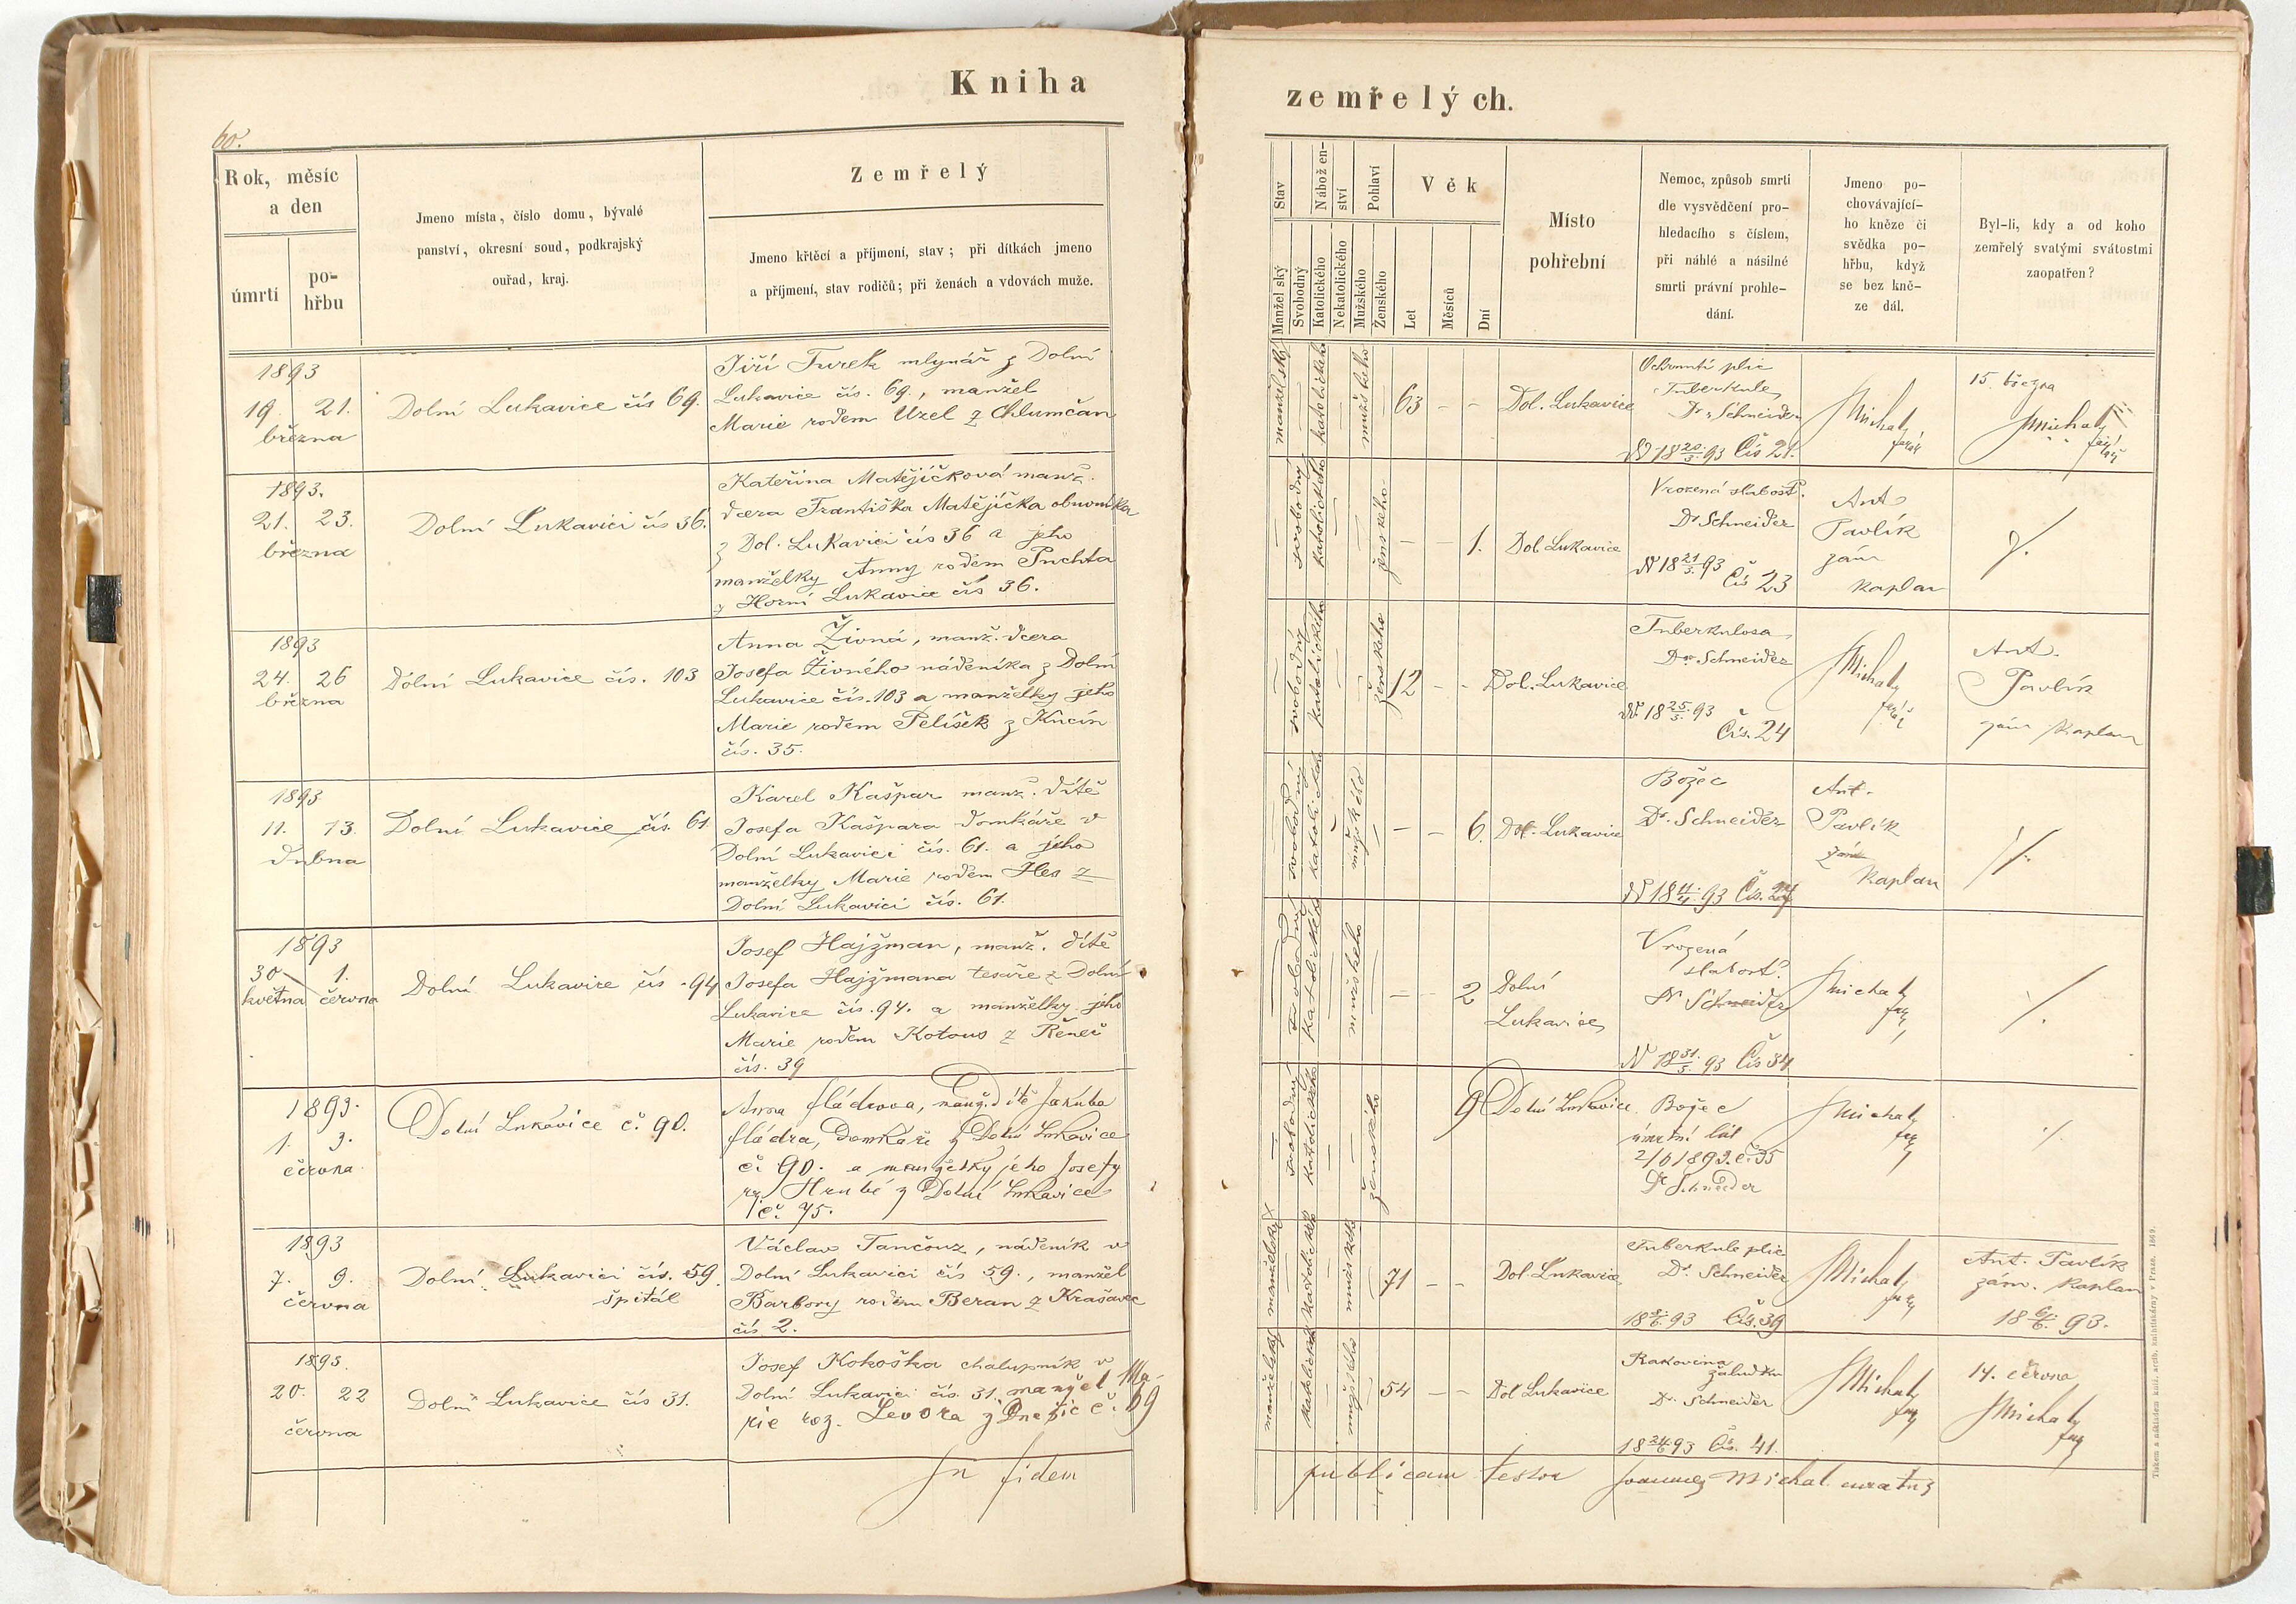 Kniha
60.
Rok, měsíc
a den
úmrtí
po-
hřbu
Jmeno místa, číslo domu, bývalé
panství, okresní soud, podkrajský
ouřad, kraj.
Zemřelý
Jmeno křtěcí a příjmení, stav; při dítkách jmeno
a příjmení, stav rodičů; při ženách a vdovách muže.
1893
19. 21.
března
Dolní Lukavice čís 69.
Jiří Turek mlynář z Dolní
Lukavice čís. 69., manžel
Marie rodem Uzel z Chlumčan
1893.
21. 23.
března
Dolní Lukavici čís 36.
Kateřina Matějíčková manž.
dcera Františka Matějíčka obuvníka
z Dol. Lukavici čís 36 a jeho
manželky Anny rodem Puchta
z Horní Lukavice čís 36.
1893
24. 26
března
Dolní Lukavice čís. 103
Anna Živná, manž. dcera
Josefa Živného nádeníka z Dolní
Lukavice čís. 103 a manželky jeho
Marie rodem Pelíšek z Knín
čís. 35.
1893
11. 13.
dubna
Dolní Lukavice čís. 61
Karel Kašpar manž. dítě
Josefa Kašpara domkáře v
Dolní Lukavici čís. 61. a jeho
manželky Marie rodem Hes z
Dolní Lukavici čís. 61.
1893
30 1.
května června
Dolní Lukavice čís. 94
Josef Hajžman, manž. dítě
Josefa Hajžmana tesaře z Dolní
Lukavice čís. 94. a manželky jeho
Marie rodem Kotous z Řeneč
čís. 39
1893.
1. 3.
června
Dolní Lukavice č. 90.
Anna Fládrova, manž. dítě Jakuba
Fládra, domkáře z Dolní Lukavice
č. 90. a manželky jeho Josefy
roz. Hrubé z Dolní Lukavice
č. 75.
1893
7. 9.
června
Dolní Lukavici čís. 59.
špitál
Václav Tančouz, nádeník v
Dolní Lukavici čís 59., manžel
Barbory rodem Beran z Krašavec
čís 2.
1893.
20. 22
června
Dolní Lukavice čís 31.
Josef Kokoška chalupník v
Dolní Lukavici čís. 31. manžel Ma-
rie roz. Levora z Dnešic č. 69
In fidem
zemřelých.
Stav
Manželský
Svobodný
Nábožen-
ství
Katolického
Nekatolického
Pohlaví
Mužského
Ženského
Věk
Let
Měsíců
Dní
Místo
pohřební
Nemoc, způsob smrti
dle vysvědčení pro-
hledacího s číslem,
při náhlé a násilné
smrti právní prohle-
dání.
Jmeno po-
chovávající-
ho kněze či
svědka po-
hřbu, když
se bez kně-
ze dál.
Byl-li, kdy a od koho
zemřelý svatými svátostmi
zaopatřen?
manželský
katolického
mužského
63 - -
Dol. Lukavice
Ochrnutí plic
Tuberkule
Dr. Schneider
N 18 20/3. 93 Čís 21.
Michal
farář
15. března
Michal
farář
svobodný
katolického
ženského
- - 1.
Dol. Lukavice
Vrozená slabost.
Dr Schneider
N 18 21/3. 93 Čís 23
Ant
Pavlík
zám
kaplan
./.
svobodný
katolického
ženského
12 - -
Dol. Lukavice
Tuberkulosa
Dr. Schneider
N. 18 25/3. 93
Čís. 24
Michal
farář
Ant.
Pavlík
zám Kaplan
svobodný
katolického
mužského
- - 6.
Dol. Lukavice
Božec
Dr. Schneider
N 18 11/4. 93 Čís. 27
Ant.
Pavlík
zám
kaplan
./.
svobodný
katolického
mužského
- - 2
Dolní
Lukavice
Vrozená
slabost.
Dr Schneider
N 18 31/5. 93 Čís 34
Michal
far
./.
svobodný
katolického
ženského
9
Dolní Lukavice
Božec
úmrtní list
2/6 1893. č. 35
Dr Schneider
Michal
far
./.
manželský
katolického
mužského
71 - -
Dol. Lukavice
Tuberkule plic
Dr. Schneider
18 8/6. 93 Čís. 39
Michal
far
Ant. Pavlík
zám. kaplan
18 6/6. 93.
manželský
katolického
mužského
54 - -
Dol Lukavice
Rakovina
žaludku
Dr. Schneider
Čís. 41.
Michal
far
14. června
Michal
far
publicam testor Joannes Michal curatus